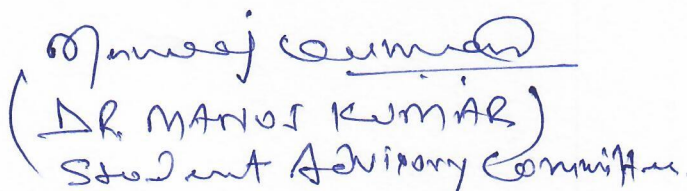 Manoj Kumar
(DR. MANOJ KUMAR)
Student Advisory Committee